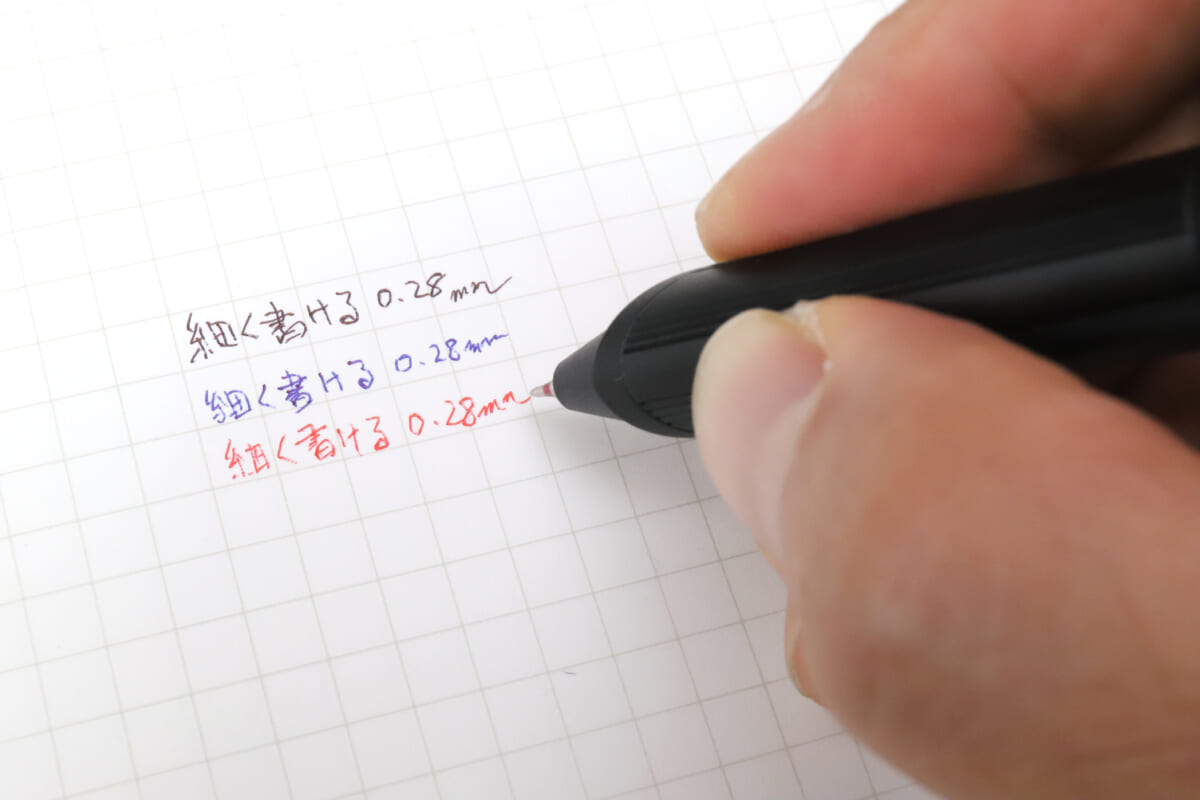 細く書ける 0.28mm
細く書ける 0.28mm
細く書ける 0.28mm